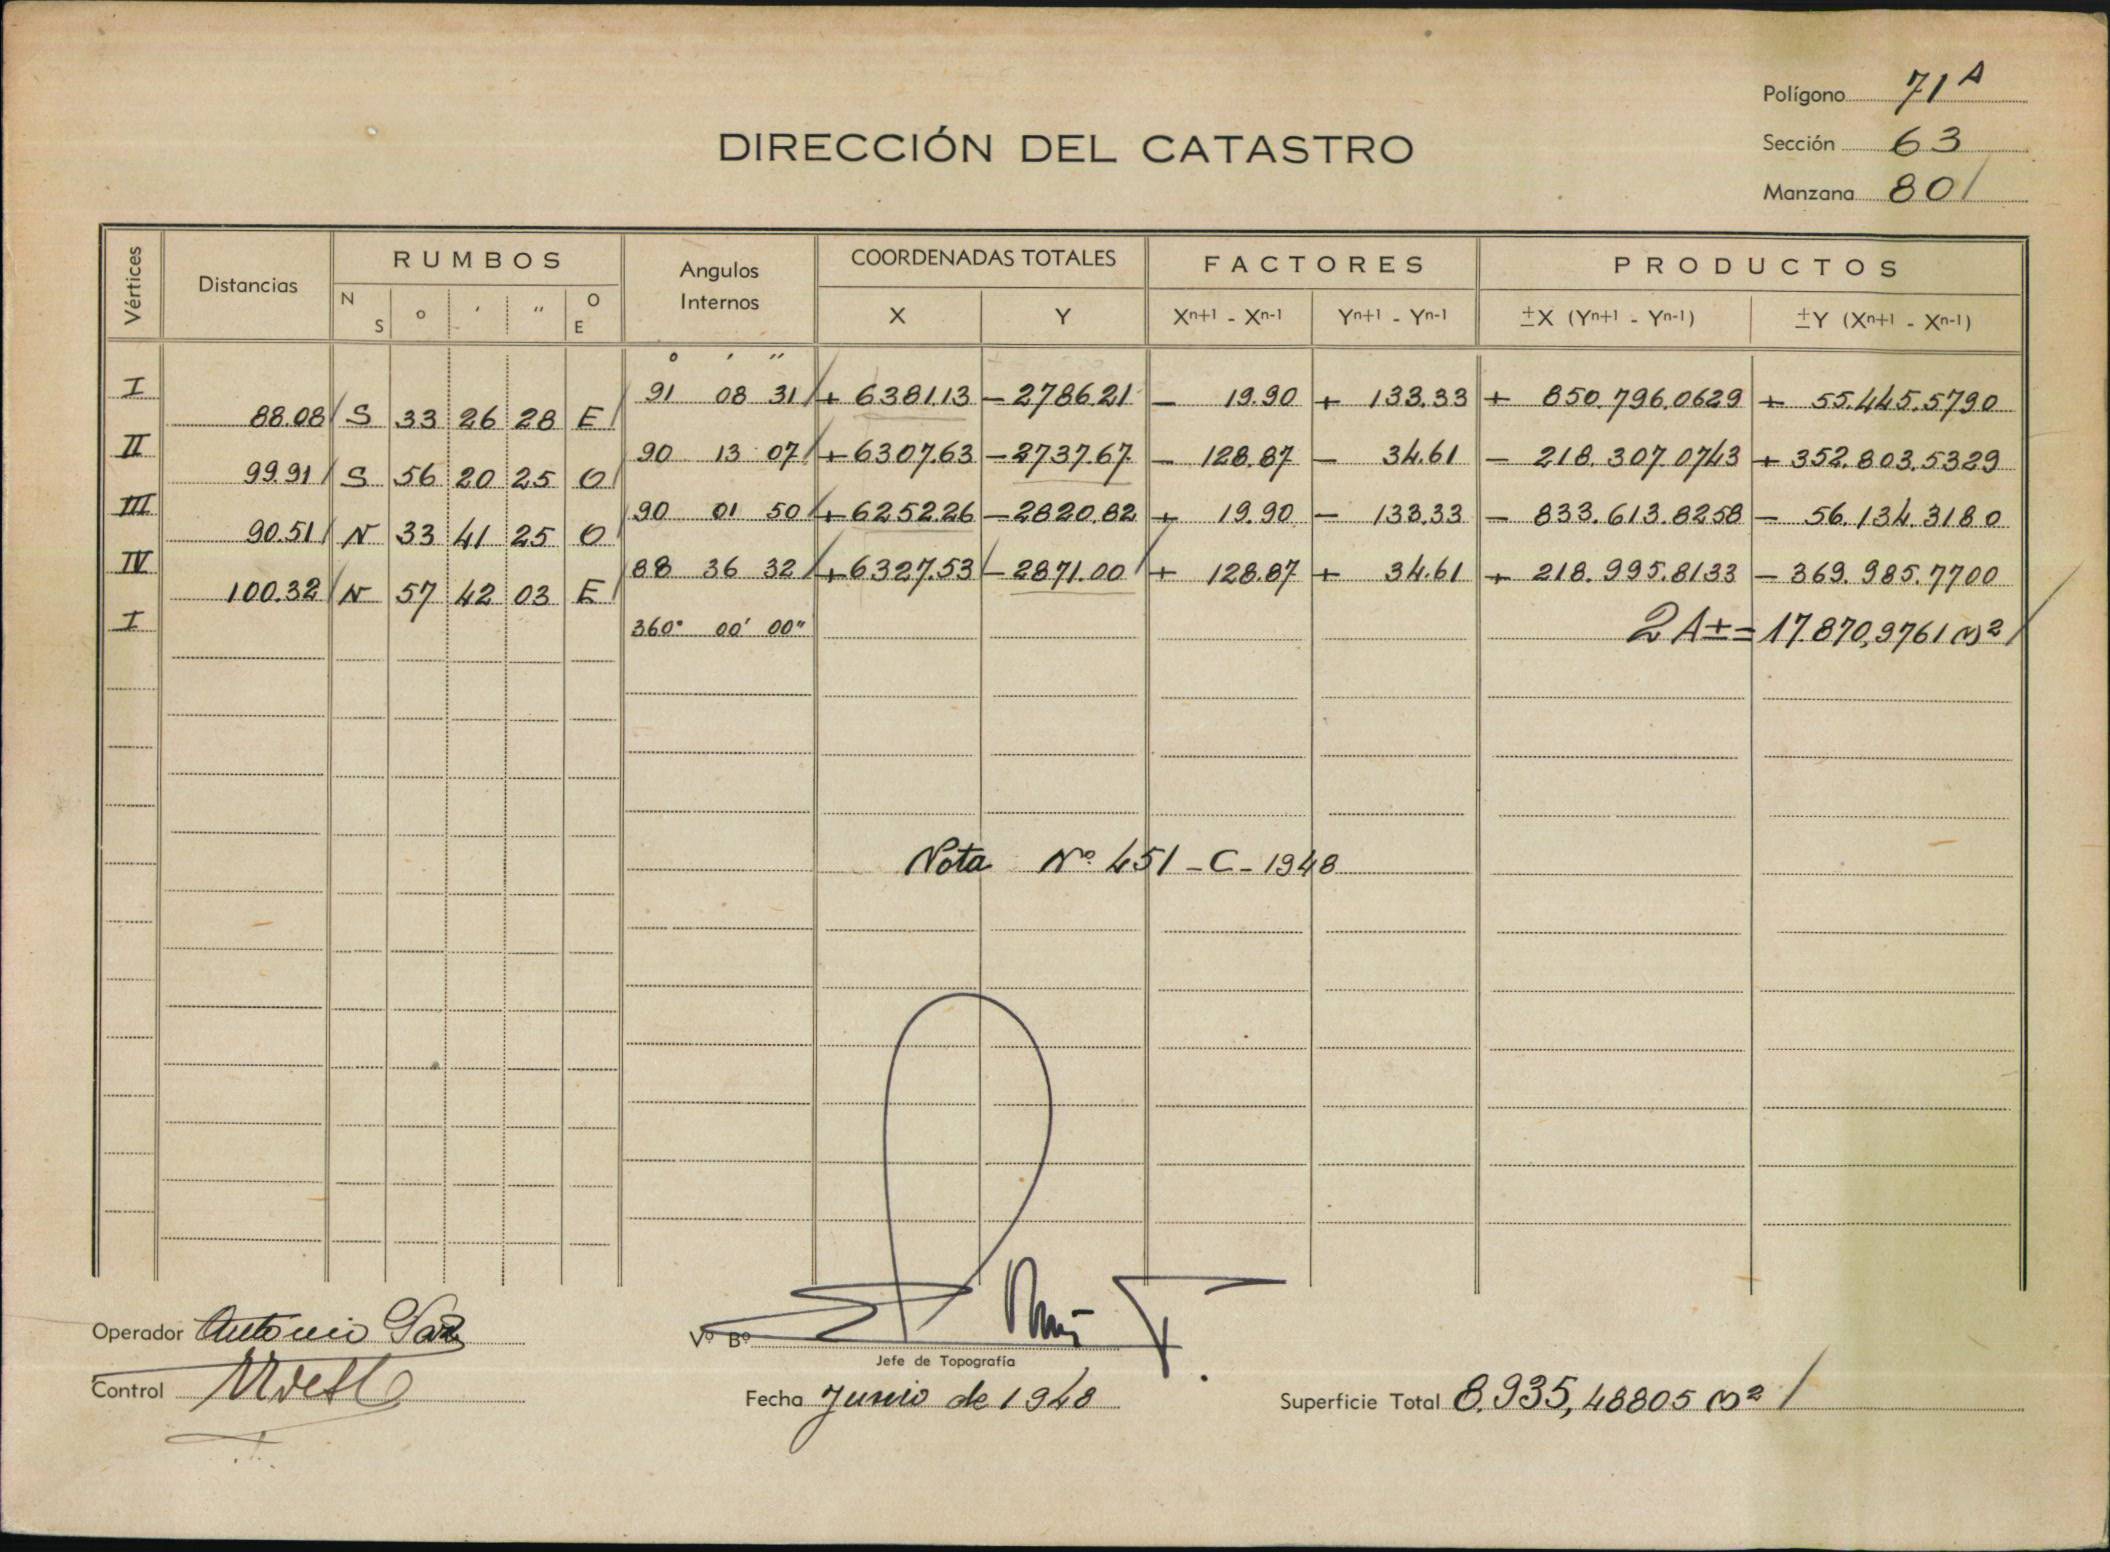 Polígono 71 A
Sección 63
Manzana 801
DIRECCIÓN DEL CATASTRO
Vértices Distancias RUMBOS Angulos Internos COORDENADAS TOTALES FACTORES PRODUCTOS
N S ° ' " O E X Y Xn+1 - Xn-1 Yn+1 - Yn-1 ±X (Yn+1 - Yn-1) ±Y (Xn+1 - Xn-1)
° ' "
I 91 08 31 + 6381.13 - 2786.21 - 19.90 + 133.33 + 850.796.0629 + 55.445.5790
88.08 S 33 26 28 E
II 90 13 07 + 6307.63 - 2737.67 - 128.87 - 34.61 - 218.307.0743 + 352.803.5329
99.91 S 56 20 25 O
III 90 01 50 + 6252.26 - 2820.82 + 19.90 - 133.33 - 833.613.8258 - 56.134.3180
90.51 N 33 41 25 O
IV 88 36 32 + 6327.53 - 2871.00 + 128.87 + 34.61 + 218.995.8133 - 369.985.7700
100.32 N 57 42 03 E
I 360° 00' 00" 2A± = 17.870,9761 m²
Nota Nº 451 - C - 1948
Operador Antonio
Vº Bº
Jefe de Topografía
Control
Fecha Junio de 1948
Superficie Total 8.935,48805 m²